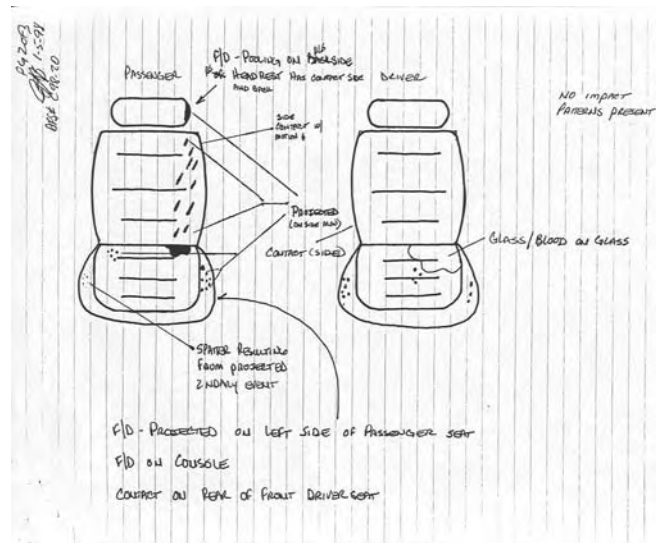 PG 2 OF 3
1-5-98
F/D - POOLING ON BACKSIDE
OF HEADREST HAS CONTACT SIDE
AND BACK
PASSENGER
DRIVER
NO IMPACT
PATTERNS PRESENT
SIDE
CONTACT W/
MOTION
PROJECTED
(ON SIDE ALSO)
CONTACT (SIDE)
GLASS/BLOOD ON GLASS
SPATTER RESULTING
FROM PROJECTED
2NDARY EVENT
F/D - PROJECTED ON LEFT SIDE OF PASSENGER SEAT
F/D ON CONSOLE
CONTACT ON REAR OF FRONT DRIVER SEAT